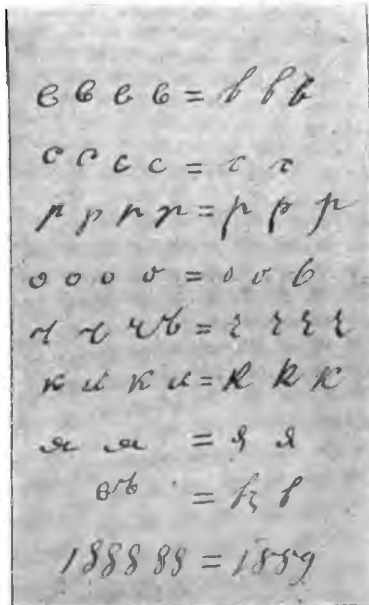 в в в в = в в в
с с с с = с с
р р р р = р р р
о о о о = о о в
ч ч чь = ч ч ч ч
к и к и = к к к
я я = я я
въ = в
188888 = 1889